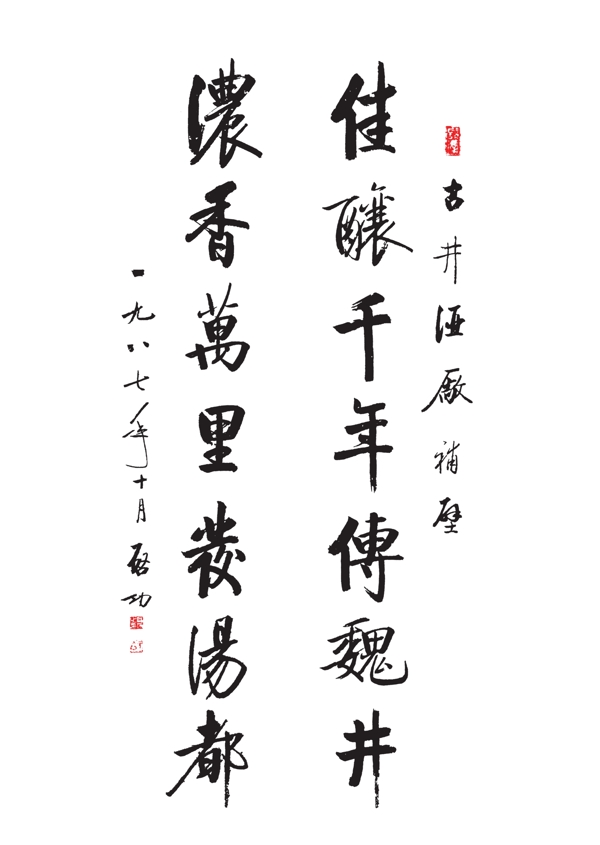 古井酒厰補壁
佳釀千年傳魏井
濃香萬里發湯都
一九八七年十月 啓功